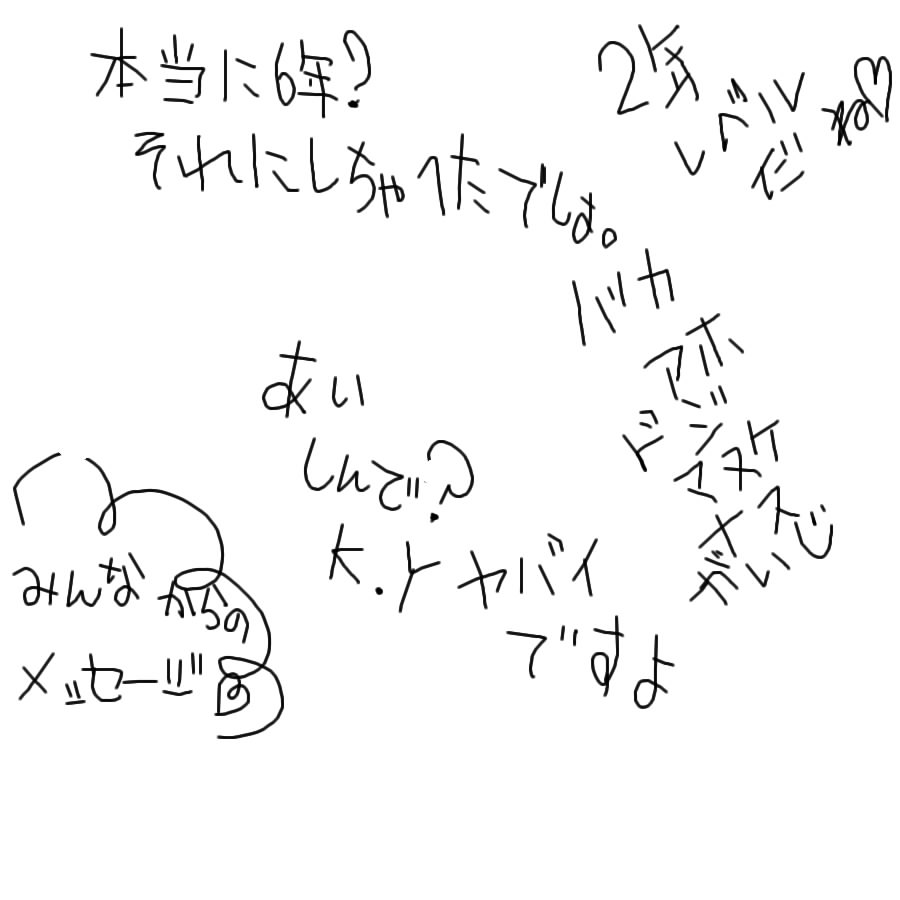 本当に6年?
それにしちゃへたでしょ。
2年
レベル
だね♡
バカ
アホ
ドジ
マヌケ
がいじ
あい
しんで?
K.Yヤバイ
ですよ
みんなからの
メッセージ